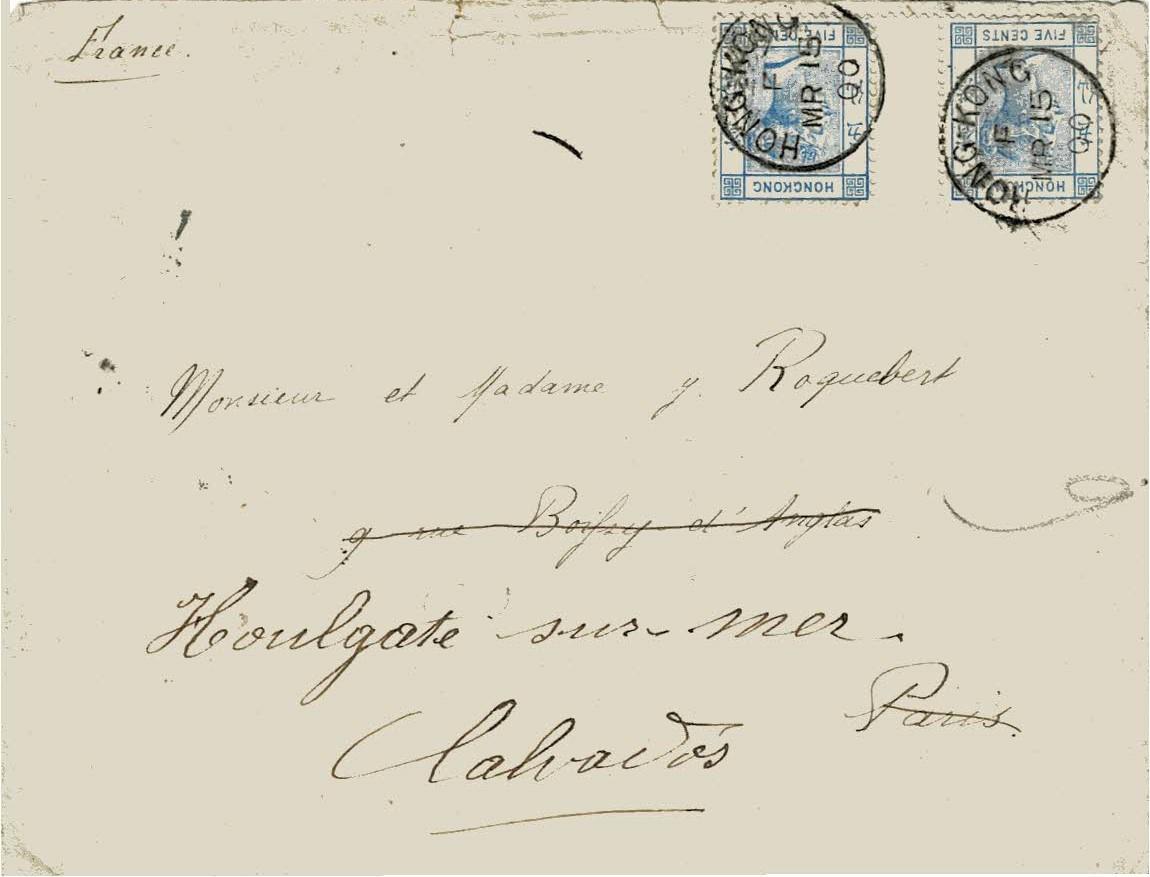 France.
FIVE CENTS
HONG-KONG
F
MR 15
00
HONGKONG
FIVE CENTS
HONG-KONG
F
MR 15
00
HONGKONG
Monsieur et Madame y. Roquebert
9 rue Boissy d'Anglas
Houlgate sur-mer.
Paris.
Calvados